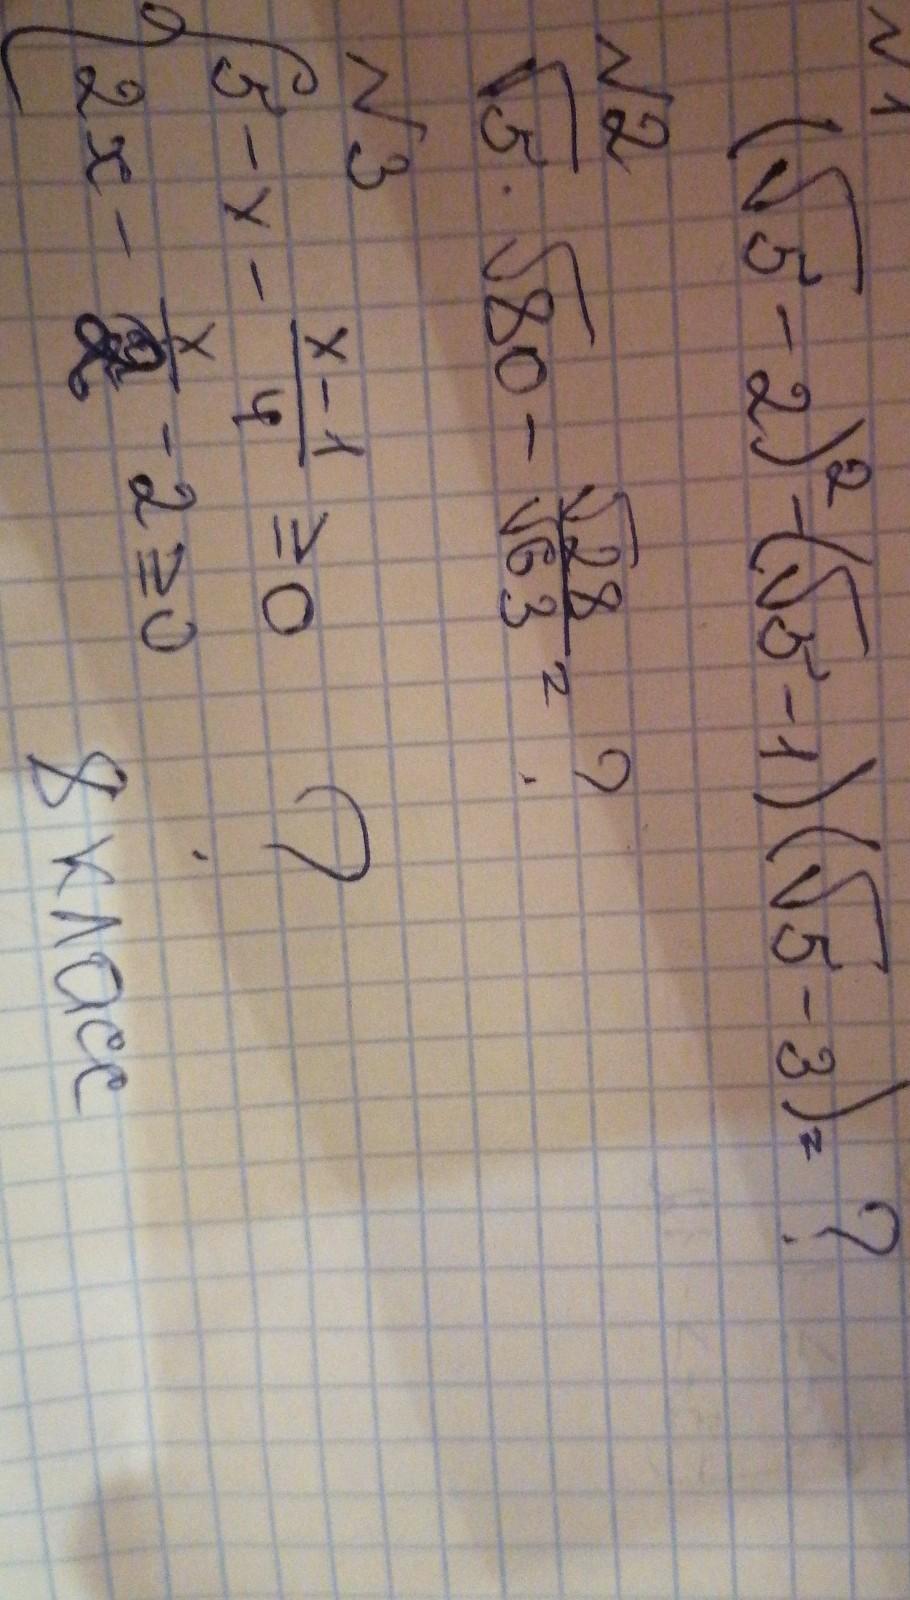 №1
(√5 - 2)² - (√5 - 1)(√5 - 3) = ?
№2
√5 · √80 - √28/√63 = ?
№3
{ 5 - x - (x-1)/4 ≥ 0
2x - x/2 - 2 ≥ 0 ?
8 класс